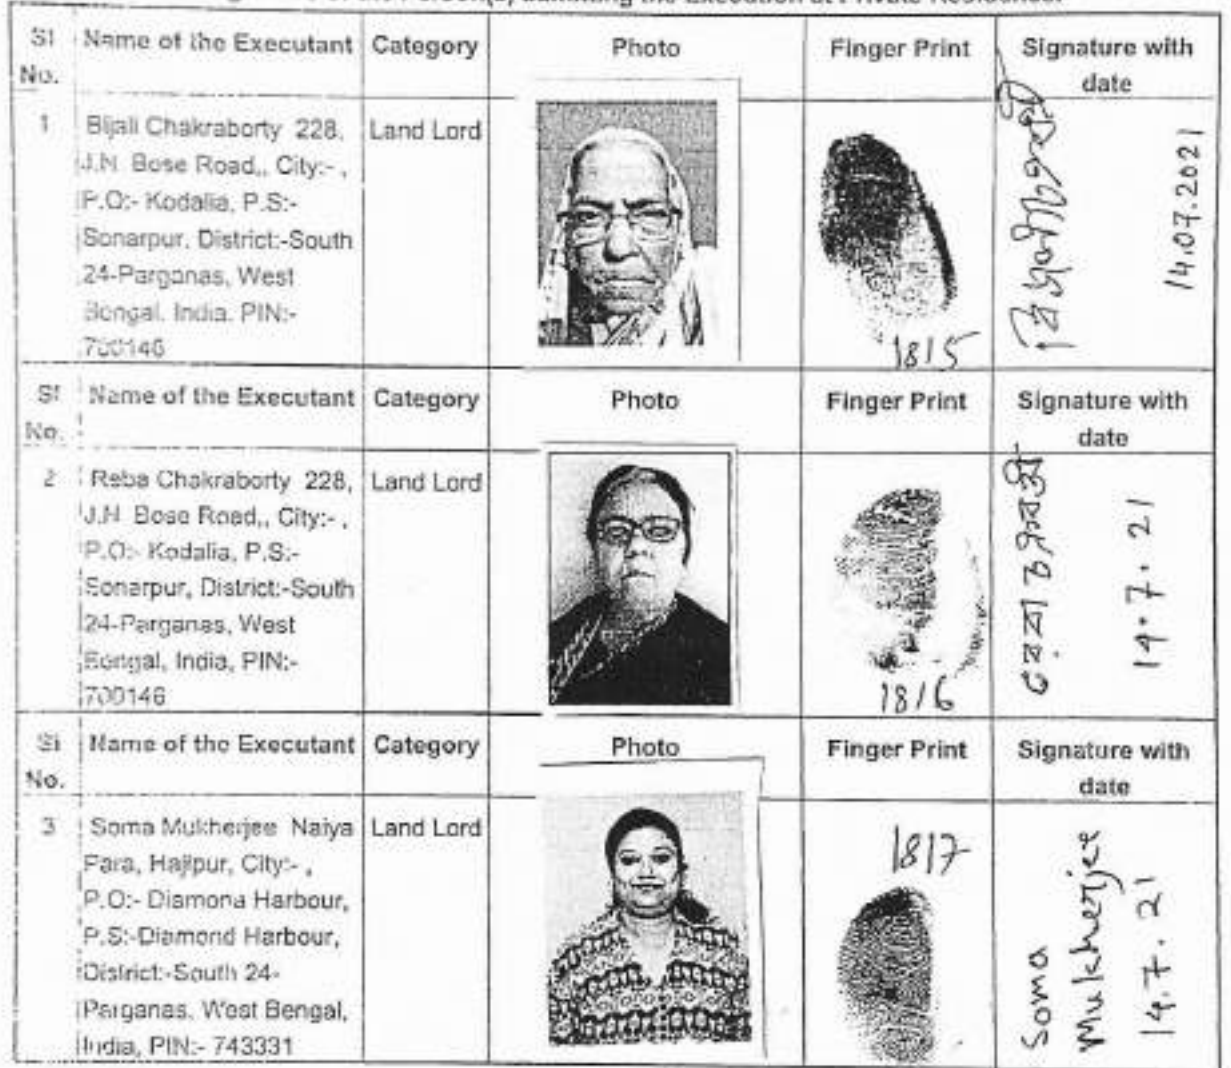 of the Person(s) admitting the Execution at Private Residence.
Sl No. Name of the Executant Category Photo Finger Print Signature with date
1 Bijali Chakraborty 228, Land Lord
J.N. Bose Road,, City:- ,
P.O:- Kodalia, P.S:-
Sonarpur, District:-South
24-Parganas, West
Bengal, India, PIN:-
700146
1815
14.07.2021
Sl No. Name of the Executant Category Photo Finger Print Signature with date
2 Reba Chakraborty 228, Land Lord
J.N Bose Road,, City:- ,
P.O:- Kodalia, P.S:-
Sonarpur, District:-South
24-Parganas, West
Bengal, India, PIN:-
700146
1816
রেবা চক্রবর্তী
14.7.21
Sl No. Name of the Executant Category Photo Finger Print Signature with date
3 Soma Mukherjee Naiya Land Lord
Para, Hajipur, City:- ,
P.O:- Diamond Harbour,
P.S:-Diamond Harbour,
District:-South 24-
Parganas, West Bengal,
India, PIN:- 743331
1817
Soma
Mukherjee
14.7.21